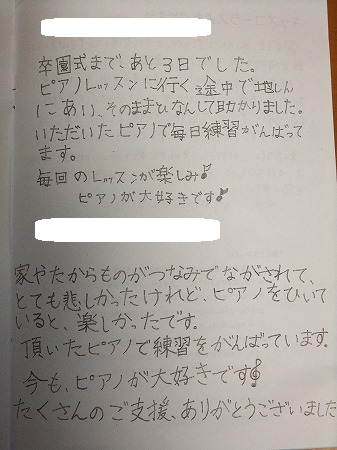 卒園式まで、あと3日でした。
ピアノレッスンに行く途中で地しん
にあい、そのままひなんして助かりました。
いただいたピアノで毎日練習がんばって
ます。
毎回のレッスンが楽しみ♪
ピアノが大好きです♪
家やたからものがつなみでながされて、
とても悲しかったけれど、ピアノをひいて
いると、楽しかったです。
頂いたピアノで練習をがんばっています。
今も、ピアノが大好きです𝄞
たくさんのご支援、ありがとうございました